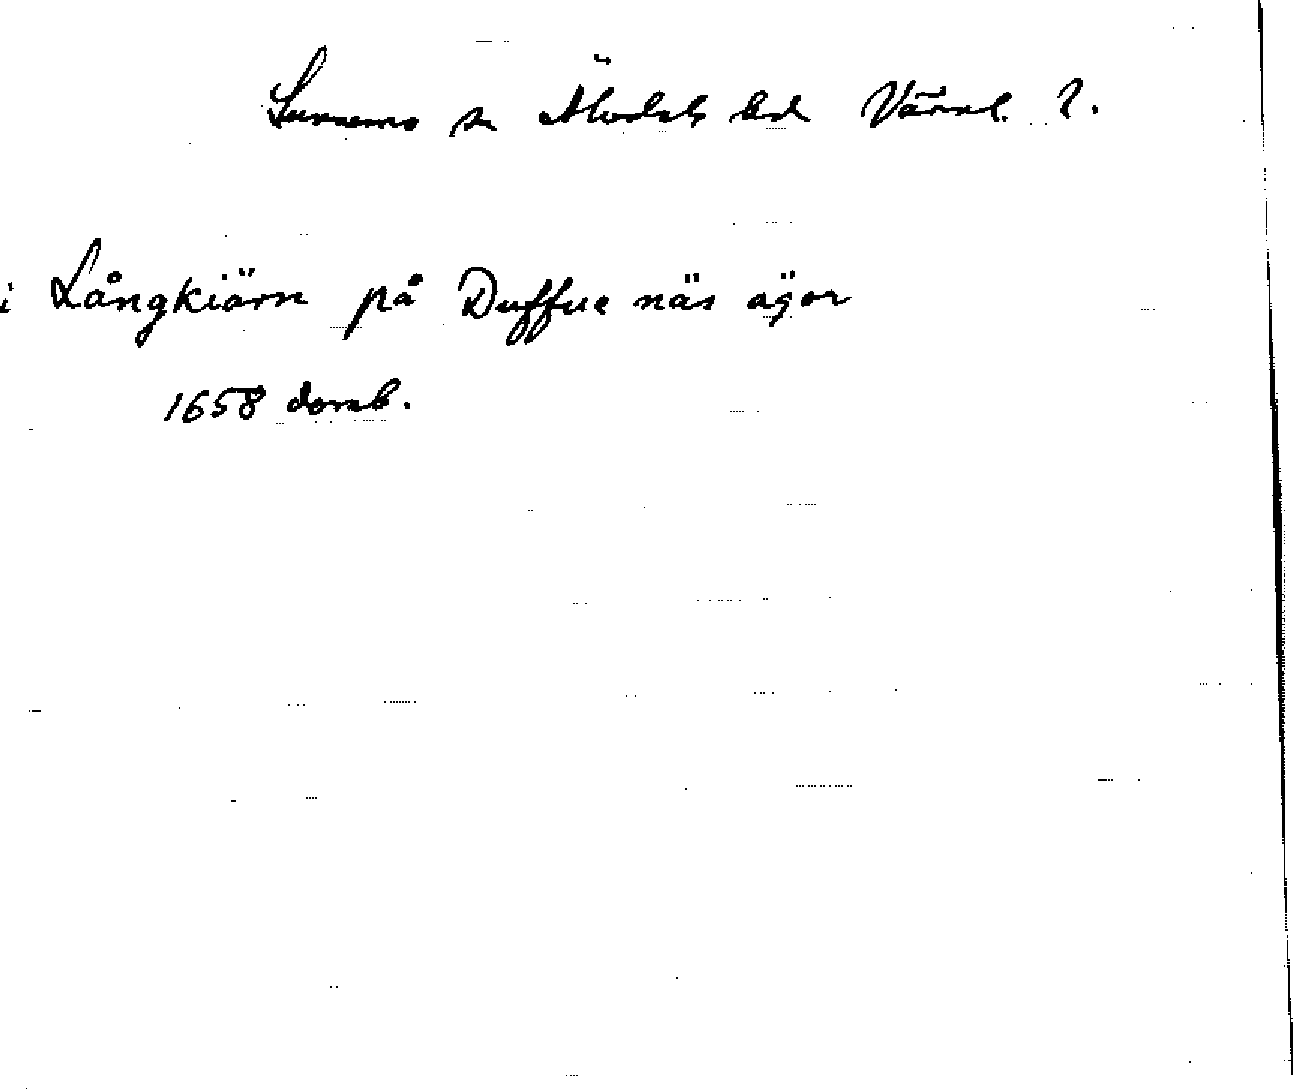 Sunnemo sn Älvdals hd Värml. l.
i Långkiärn på Duffue näs ägor
1658 domb.